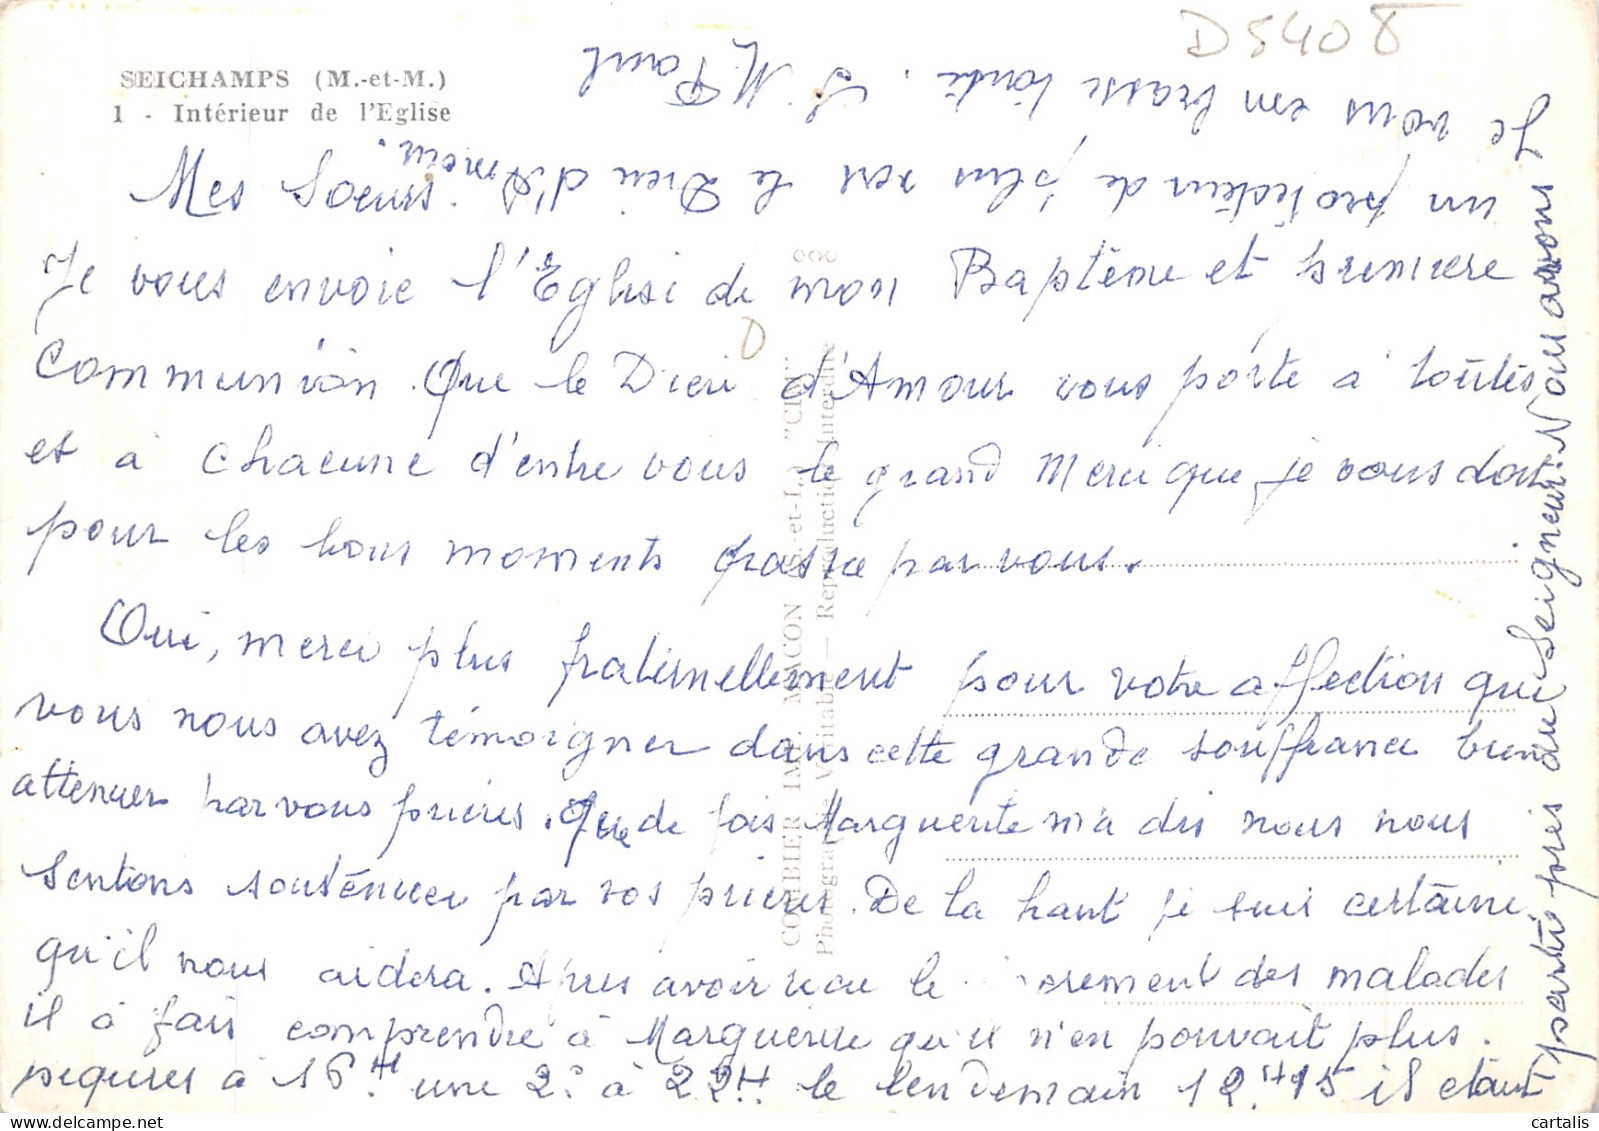 D5408
SEICHAMPS (M.-et-M.)
1 - Intérieur de l'Eglise
Mes Soeurs.
Je vous envoie l'Eglise de mon Baptême et premiere
Communion. Que le Dieu d'Amour vous porte à toutes
et à chacune d'entre vous le grand Merci que je vous dois
pour les bons moments passée par vous.
Oui, merci plus fraternellement pour votre affection que
vous nous avez témoigner dans cette grande souffrance bien
attenuer par vous prieres. Que de fois Marguerite m'a dis nous nous
sentons soutenuer par vos prieres. De la haut je suis certaine
qu'il nous aidera. Apres avoir reçu le des malades
il a fais comprendre à Marguerite qu'il n'en pouvait plus.
piqures à 16.H une 2° à 22H. le lendemain 12.H15 il etait
partie près du Seigneur. Nous avons
un protecteur de plus vers le Dieu d'Amour.
Je vous embrasse toute. S. M. Paul
COMBIER IMP. MACON (S.-et-L.) "CIM"
Photographie Véritable — Reproduction Interdite
D